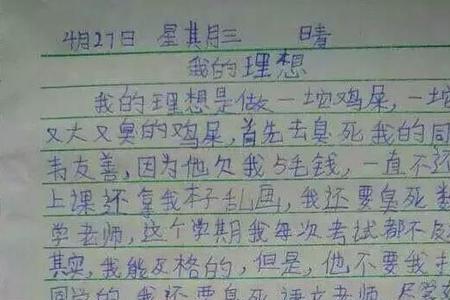 4月27日 星其月三 晴
我的理想
我的理想是做一坨鸡屎,一坨
又大又臭的鸡屎,首先去臭死我的同
韦友善,因为他欠我5毛钱,一直不还
上课还拿我本子乱画,我还要臭死数
学老师,这个学期我每次考试都不及
其实,我能及格的,但是,他不要我
同学的 我还要臭死语文老师